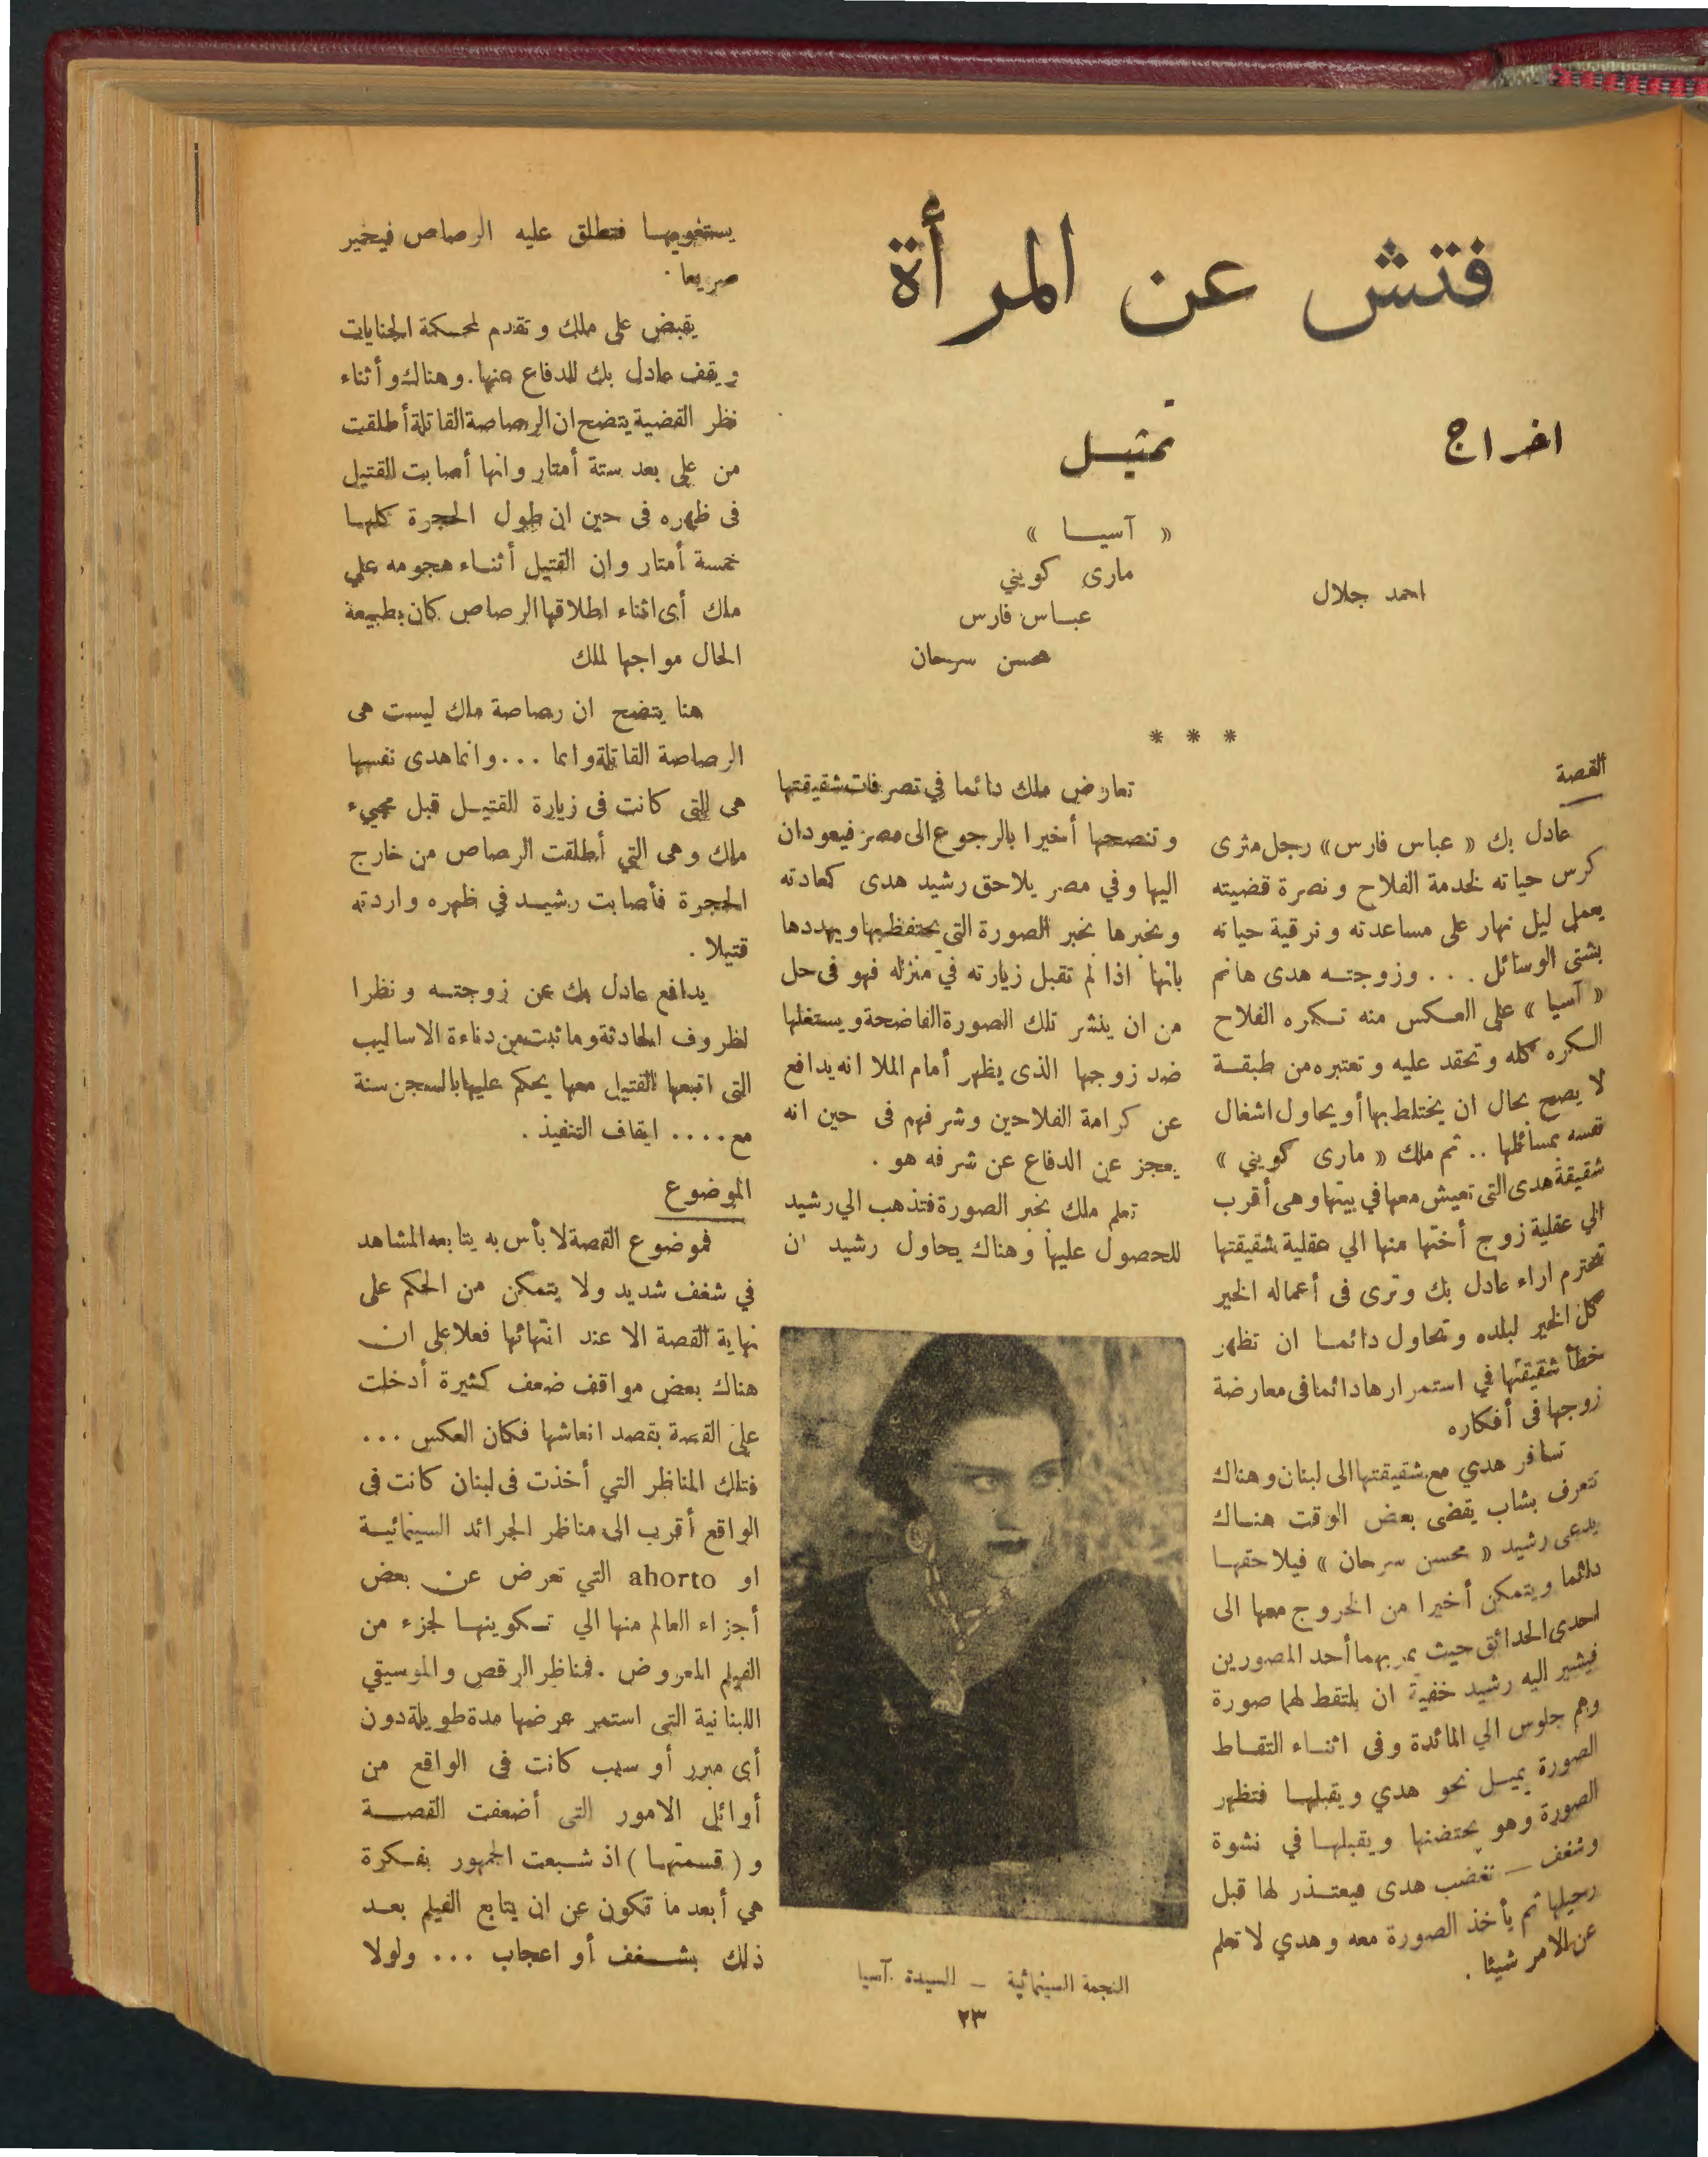 فتش عن المرأة
اخراج
احمد جلال
تمثيل
« آسيا »
مارى كوينى
عباس فارس
محسن سرحان
* * *
القصة
عادل بك « عباس فارس» رجل مثرى
كرس حياته لخدمة الفلاح ونصرة قضيته
يعمل ليل نهار على مساعدته وترقية حياته
بشتى الوسائل ... وزوجته هدى هانم
« آسيا » على العكس منه تكره الفلاح
الكره كله وتحقد عليه وتعتبره من طبقة
لا يصح بحال ان يختلط بها أو يحاول اشغال
نفسه بمسائلها .. ثم ملك « مارى كوينى »
شقيقة هدى التى تعيش معها في بيتها وهى أقرب
الي عقلية زوج أختها منها الي عقلية شقيقتها
تحترم اراء عادل بك وترى فى أعماله الخير
كل الخير لبلده وتحاول دائما ان تظهر
خطأ شقيقتها في استمرارها دائما فى معارضة
زوجها فى أفكاره
تسافر هدي مع شقيقتها الى لبنان وهناك
تتعرف بشاب يقضى بعض الوقت هناك
يدعى رشيد « محسن سرحان » فيلاحقها
دائما ويتمكن أخيرا من الخروج معها الى
احدى الحدائق حيث يمر بهما أحد المصورين
فيشير اليه رشيد خفية ان يلتقط لهما صورة
وهم جلوس الي المائدة وفى اثناء التقاط
الصورة يميل نحو هدي ويقبلها فتظهر
الصورة وهو يحتضنها ويقبلها في نشوة
وشغف — تغضب هدى فيعتذر لها قبل
رحيلها ثم يأخذ الصورة معه وهدي لا تعلم
عن الامر شيئا .
تعارض ملك دائما في تصرفات شقيقتها
وتنصحها أخيرا بالرجوع الى مصر فيعودان
اليها وفي مصر يلاحق رشيد هدى كعادته
ويخبرها بخبر الصورة التي يحتفظ بها ويهددها
بانها اذا لم تقبل زيارته في منزله فهو فى حل
من ان ينشر تلك الصورة الفاضحة ويستغلها
ضد زوجها الذى يظهر أمام الملا انه يدافع
عن كرامة الفلاحين وشرفهم فى حين انه
يعجز عن الدفاع عن شرفه هو .
تعلم ملك بخبر الصورة فتذهب الي رشيد
للحصول عليها وهناك يحاول رشيد ان
النجمة السينمائية - السيدة آسيا
يستغويها فتطلق عليه الرصاص فيخر
صريعا .
يقبض على ملك وتقدم لمحكمة الجنايات
ويقف عادل بك للدفاع عنها . وهناك وأثناء
نظر القضية يتضح ان الرصاصة القاتلة أطلقت
من على بعد ستة أمتار وانها أصابت القتيل
فى ظهره فى حين ان طول الحجرة كلها
خمسة أمتار وان القتيل أثناء هجومه علي
ملك أى اثناء اطلاقها الرصاص كان بطبيعة
الحال مواجها لملك
هنا يتضح ان رصاصة ملك ليست هى
الرصاصة القاتلة وانما ... وانما هدى نفسها
هى التى كانت فى زيارة القتيل قبل مجيء
ملك وهى التي أطلقت الرصاص من خارج
الحجرة فأصابت رشيد في ظهره واردته
قتيلا .
يدافع عادل بك عن زوجته ونظرا
لظروف الحادثة وما ثبت من دناءة الاساليب
التى اتبعها القتيل معها يحكم عليها بالسجن سنة
مع .... ايقاف التنفيذ .
الموضوع
فموضوع القصة لا بأس به يتابعه المشاهد
في شغف شديد ولا يتمكن من الحكم على
نهاية القصة الا عند انتهائها فعلا على ان
هناك بعض مواقف ضعف كثيرة أدخلت
على القصة بقصد انعاشها فكان العكس ...
فتلك المناظر التي أخذت فى لبنان كانت فى
الواقع أقرب الى مناظر الجرائد السينمائية
او ahorto التي تعرض عن بعض
أجزاء العالم منها الي تكوينها لجزء من
الفيلم المعروض . فمناظر الرقص والموسيقي
اللبنانية التى استمر عرضها مدة طويلة دون
أى مبرر أو سبب كانت فى الواقع من
أوائل الامور التى أضعفت القصة
و ( قسمتها ) اذ شبعت الجمهور بفكرة
هي أبعد ما تكون عن ان يتابع الفيلم بعد
ذلك بشغف أو اعجاب ... ولولا
٢٣